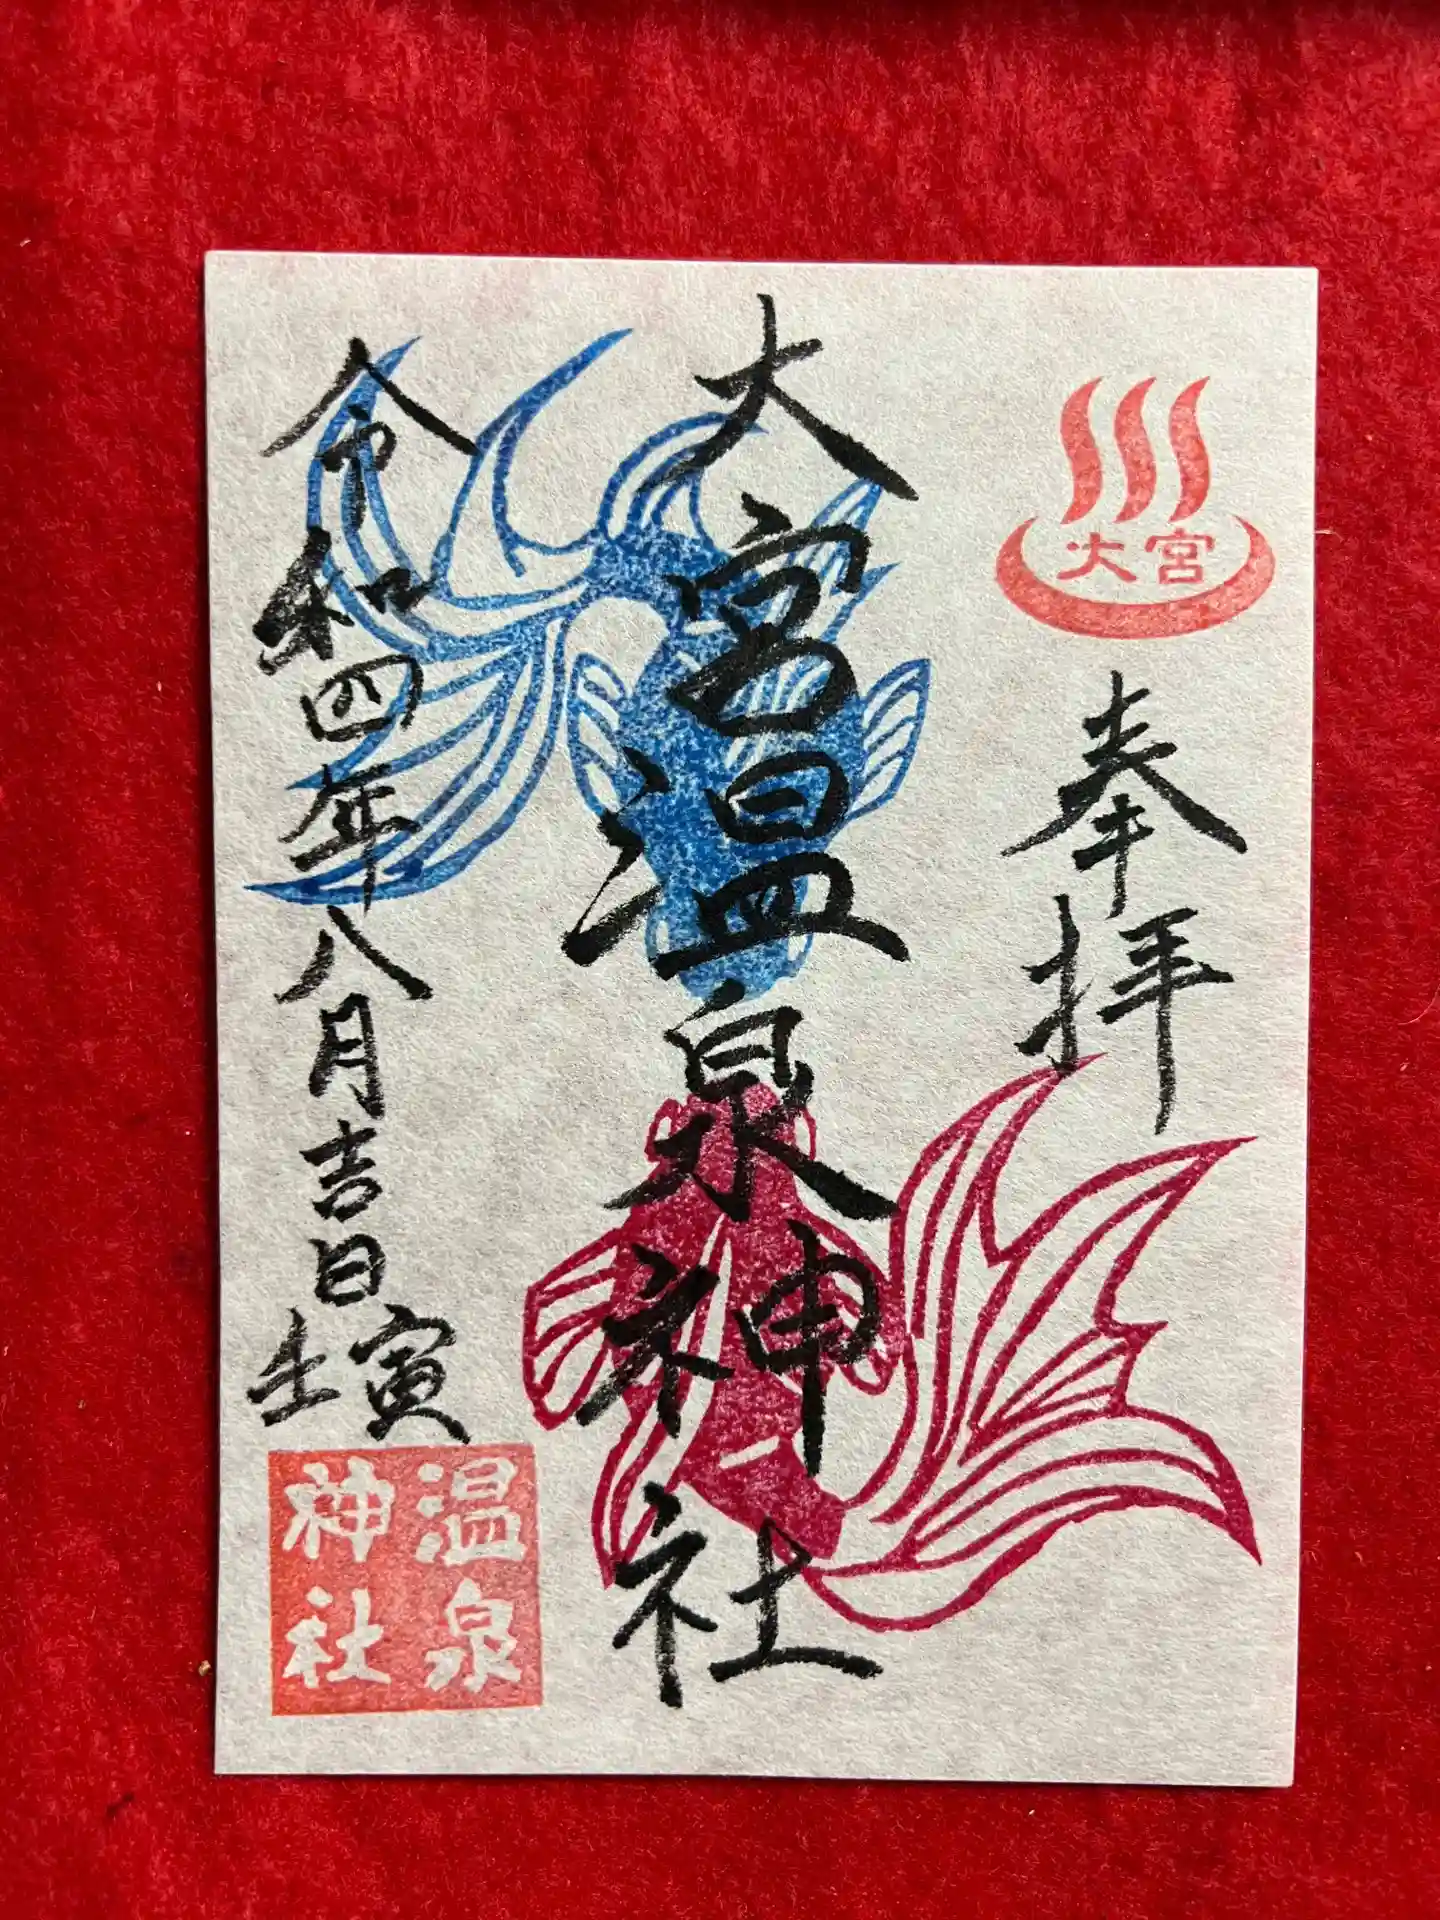 大宮
奉拝
大宮温泉神社
令和四年八月吉日
壬寅
温泉
神社